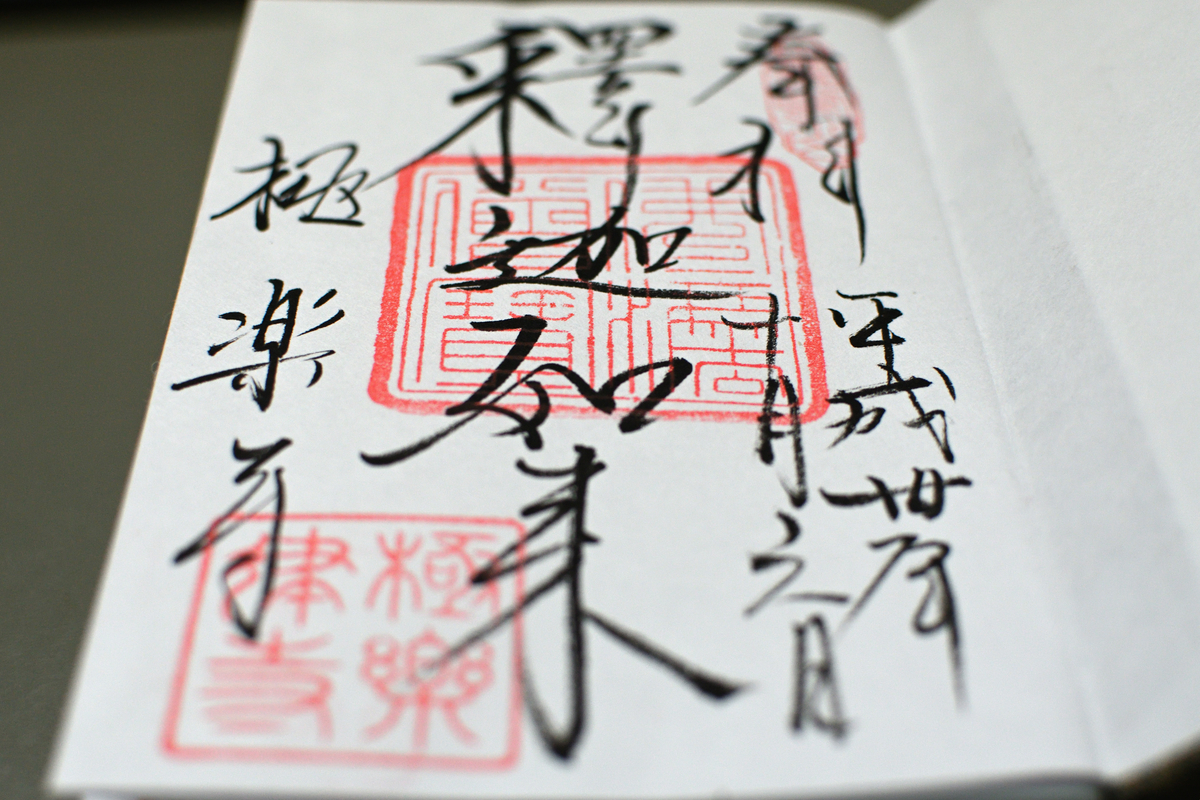 奉拝
平成卅年
十月六日
釋迦如来
極楽寺
極樂律寺